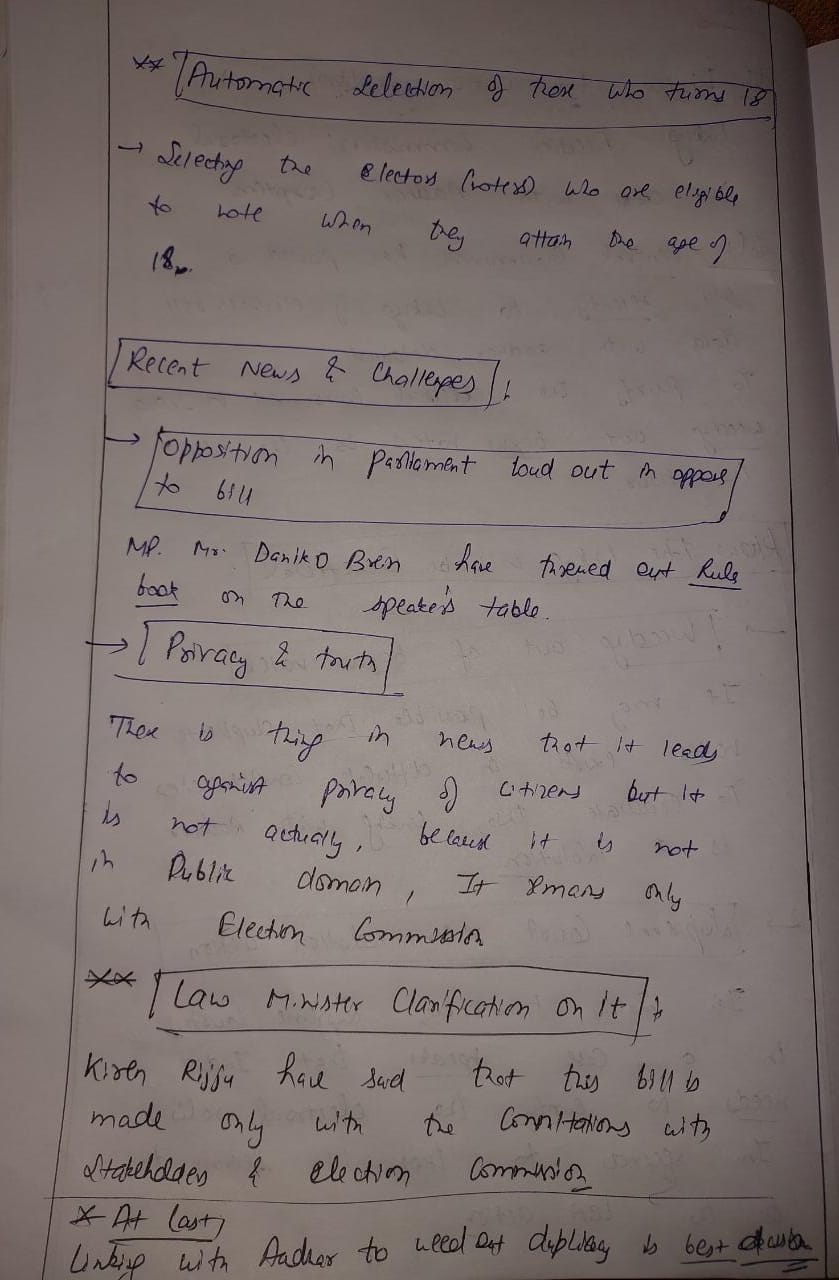 ** Automatic Selection of those who turns 18
→ Selecting the electors (voters) who are eligible
to vote when they attain the age of
18.
Recent News & Challenges
→ Opposition in Parliament loud out in oppose
to bill
MP. Mr. Danik O Bren have throwed out Rule
book on The speaker's table.
→ Privacy & truth
There is thing in news that it leads
to against privacy of citizens but it
is not actually, because it is not
in Public domain, It remans only
with Election Commission
** Law Minister Clarification on it
Kiren Rijju have said that this bill is
made only with the Consultations with
Stakeholders & election Commission
* At last,
Linking with Aadhar to weed out duplicay is best decision